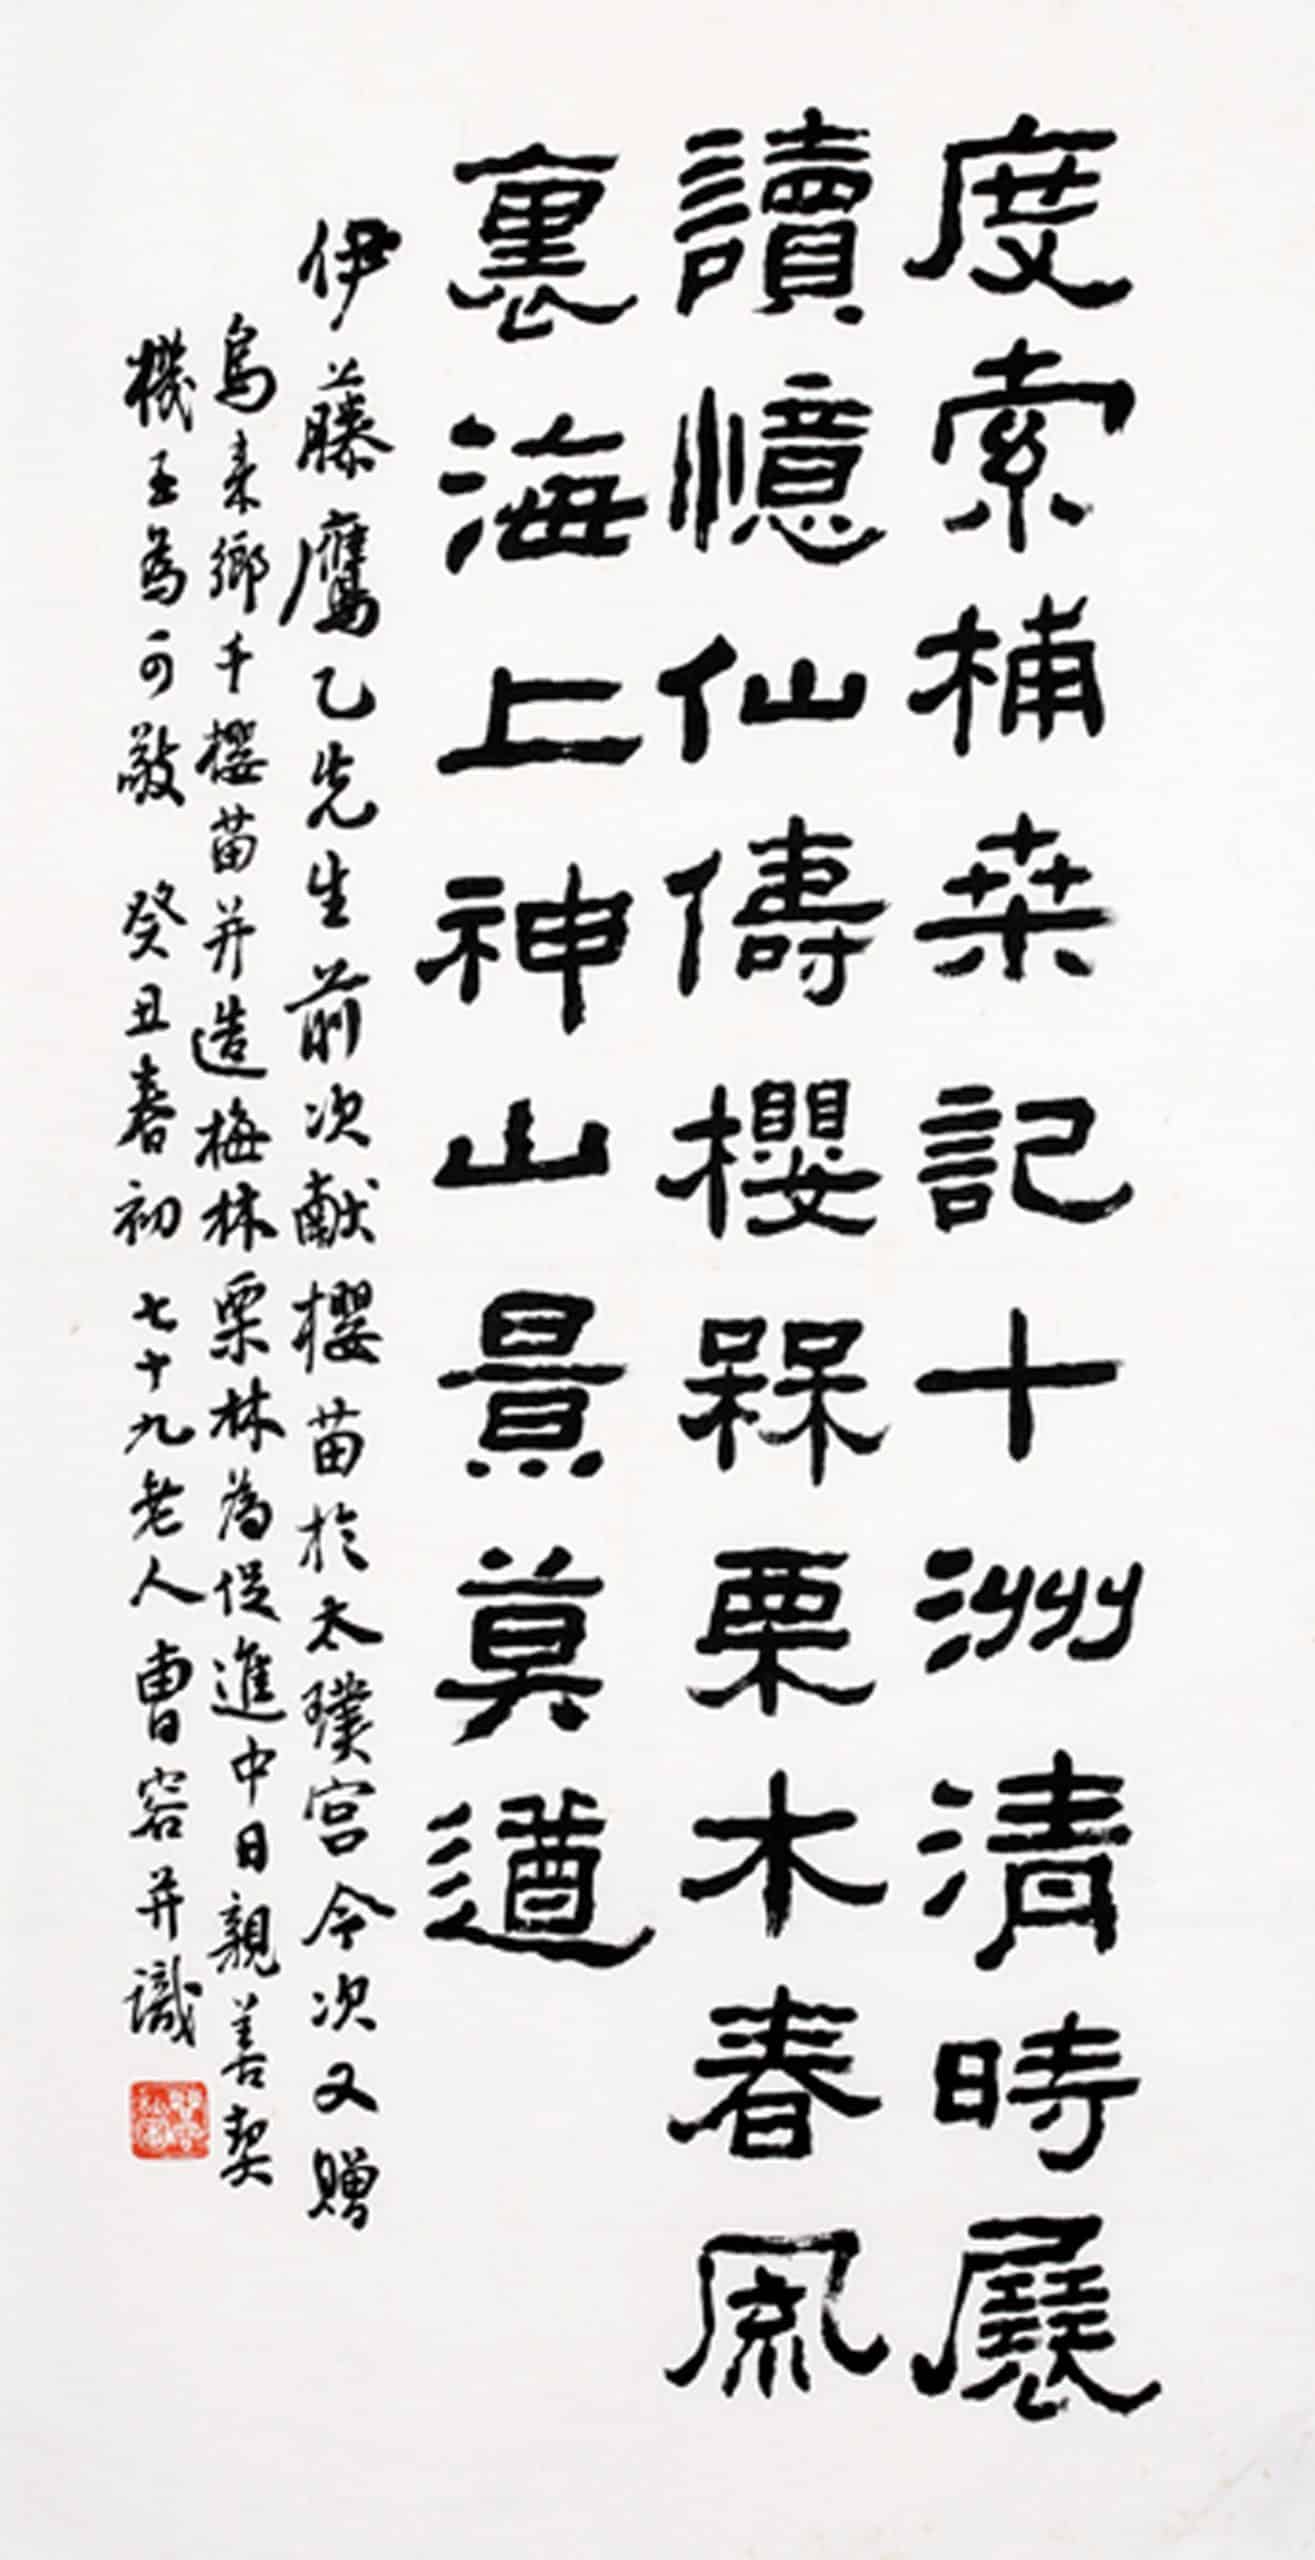 度索桒記十洲清時展
讀憶仙儔櫻槑栗木春風
裏海上神山景莫遒
伊藤鷹乙先生前次献櫻苗於太璞宮今次又贈
烏来鄉千櫻苗并造梅林栗林為促進中日親善契
機至為可敬 癸丑春初 七十九老人曹容并識